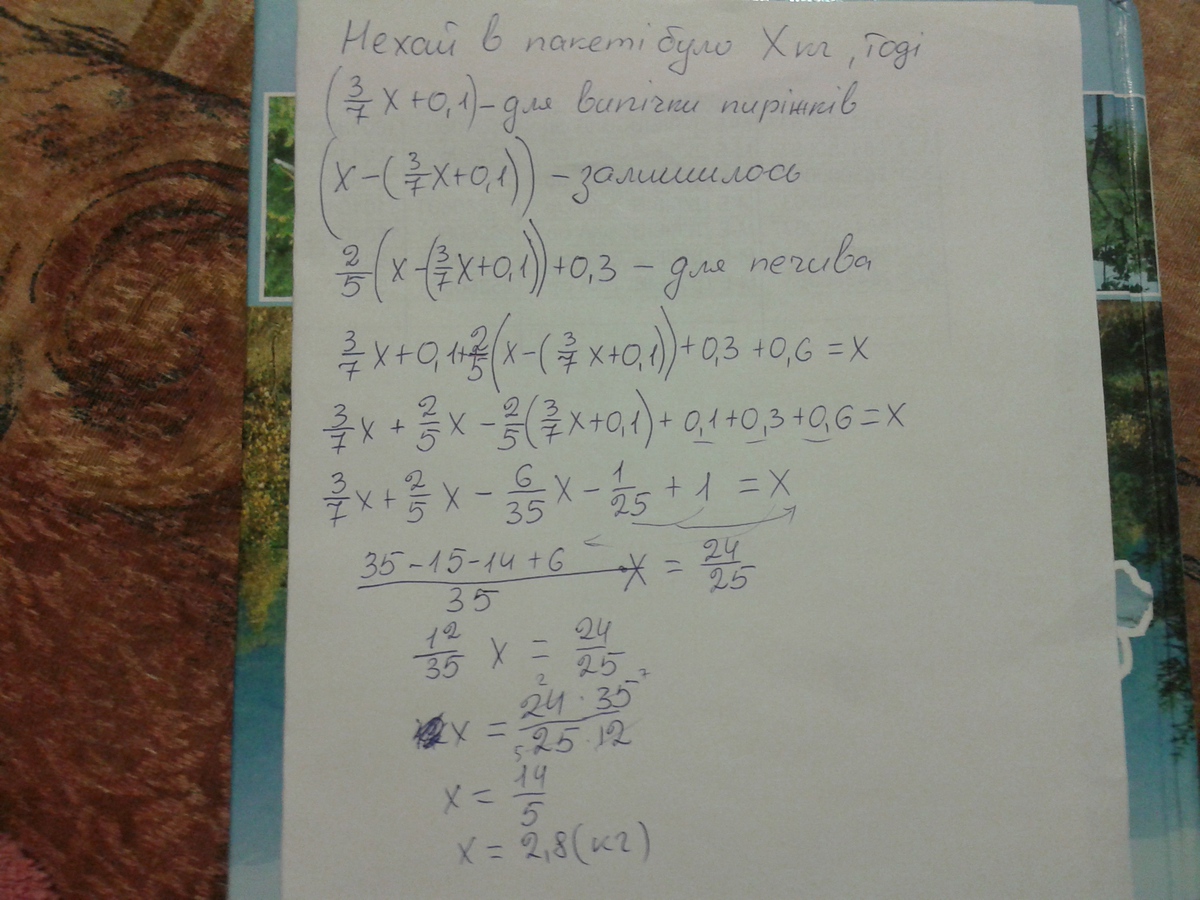 Нехай в пакеті було X кг, тоді
(3/7 X + 0,1) – для випічки пиріжків
(X – (3/7 X + 0,1)) – залишилось
2/5 (X – (3/7 X + 0,1)) + 0,3 – для печива
3/7 X + 0,1 + 2/5 (X – (3/7 X + 0,1)) + 0,3 + 0,6 = X
3/7 X + 2/5 X – 2/5 (3/7 X + 0,1) + 0,1 + 0,3 + 0,6 = X
3/7 X + 2/5 X – 6/35 X – 1/25 + 1 = X
(35 – 15 – 14 + 6)/35 X = 24/25
12/35 X = 24/25
X = (24 2 · 35 7)/(5 25 · 12)
X = 14/5
X = 2,8 (кг)